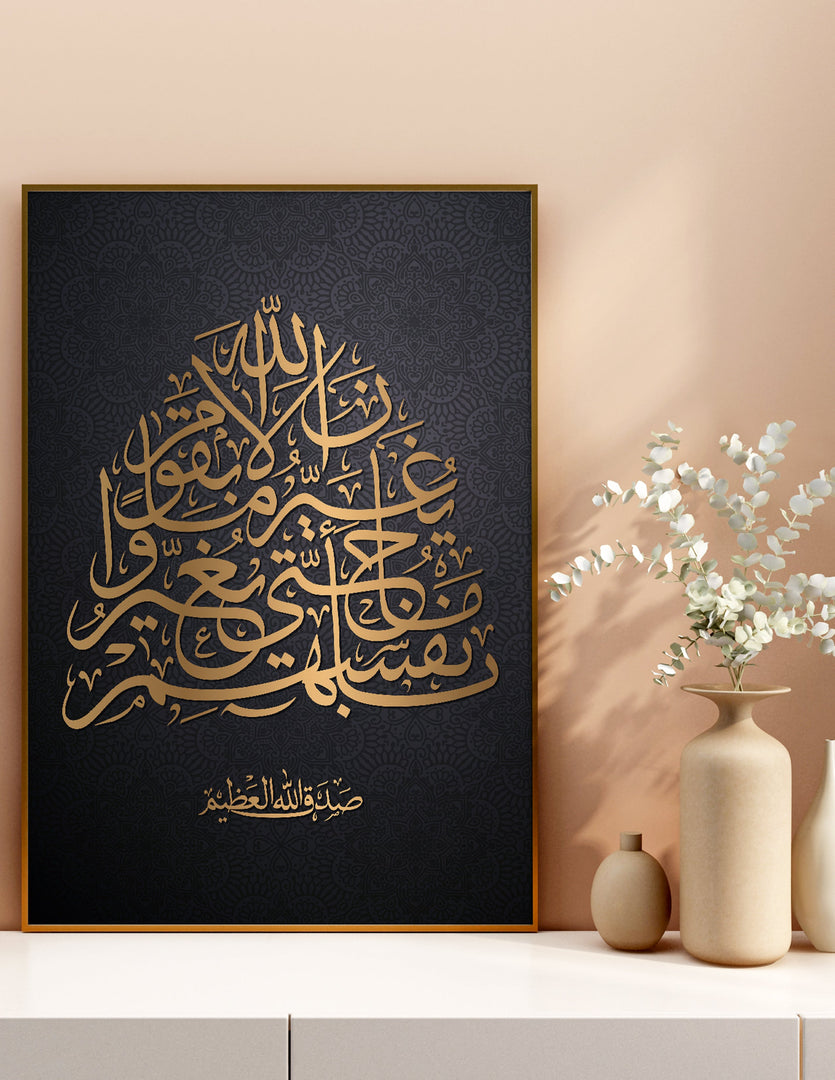 ان الله لا يغير ما بقوم حتى يغيروا ما بأنفسهم
صدق الله العظيم